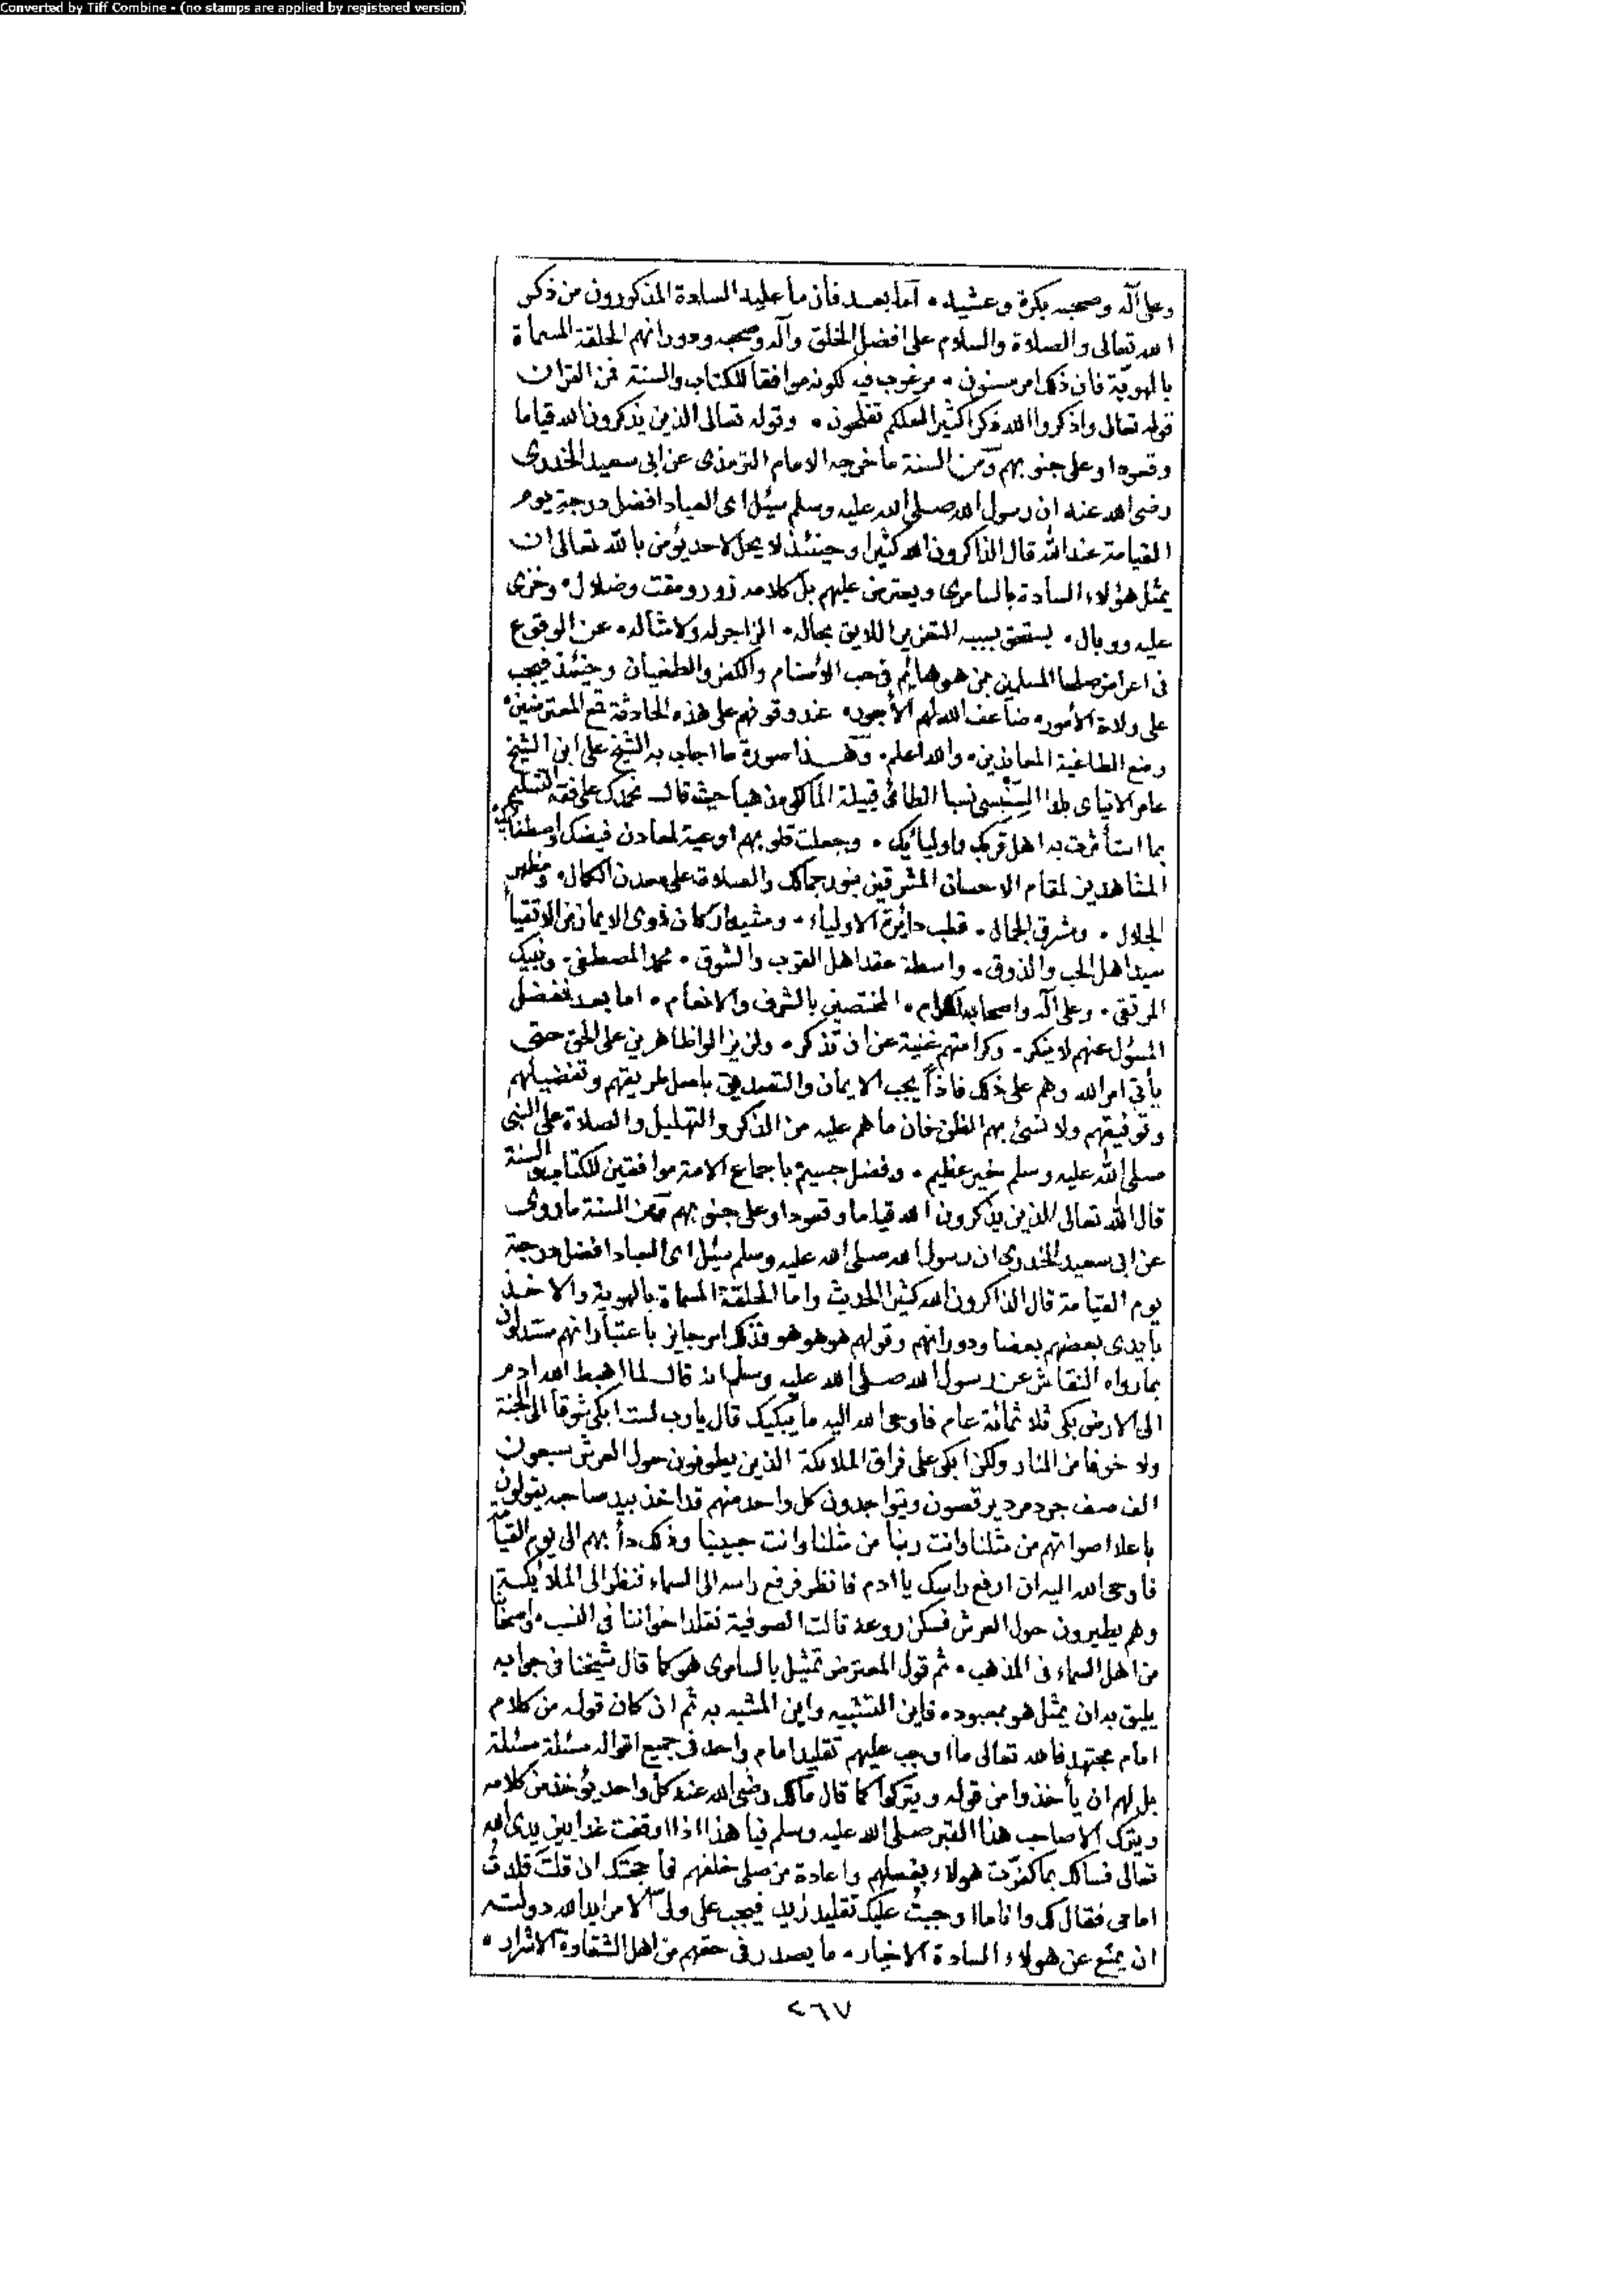 Converted by Tiff Combine - (no stamps are applied by registered version)
وعلى آله وصحبه بكرة وعشيه • آما بعد فان ما عليه السادة المذكورون من ذكر
الله تعالى والصلاة والسلام على افضل الخلق وآله وصحبه ودورانهم الحلقة المسماة
بالهوية فان ذلك امر مسنون • مرغوب فيه لكونه موافقا للكتاب والسنة فمن القران
قوله تعالى واذكروا الله ذكرا كثيرا لعلكم تفلحون • وقوله تعالى الذين يذكرون الله قياما
وقعودا وعلى جنوبهم ومن السنة ما خرجه الامام الترمذى عن ابى سعيد الخدرى
رضى الله عنه ان رسول الله صلى الله عليه وسلم سئل اى العباد افضل درجة يوم
القيامة عند الله قال الذاكرون الله كثيرا وحينئذ لا يحل لاحد يؤمن بالله تعالى ان
يمثل هؤلاء السادة بالسامرى ويعترض عليهم بل كلامه زور ومقت وضلال • وخزى
عليه ووبال • يستحق بسببه التعزير اللايق بحاله • الزاجر له ولامثاله • عن الوقوع
فى اعراض صلحا المسلمين من هو هائم فى حب الأصنام والكفر والطغيان وحينئذ فيجب
على ولاة الأمور • ضاعف الله لهم الأجور • عند وقوفهم على هذه الحادثة قمع المعترضين •
ومنع الطاغية المعاندين • والله اعلم • وهذا صورة ما اجاب به الشيخ على ابن الشيخ
عامر الاتياى بلدا السنبسى نسبا الطائى قبيلة المالكى مذهبا حيث قال نحمدك على فقه التسليم
بما استأثرت به اهل قربك واوليائك • وجعلت قلوبهم اوعية لمعادن فيضك واصطفائك
المشاهدين لمقام الاحسان المشرقين بنور جمالك والصلاة على معدن الكمال • ومظهر
الجلال • ومشرق الجمال • قطب دائرة الاولياء • ومشيد اركان ذوى الايمان من الاتقيا
سيد اهل الحب والذوق • واسطة عقد اهل القرب والشوق • محمد المصطفى • ونبيك
المرتقى • وعلى آله واصحابه الكرام • المختصين بالشرف والانعام • اما بعد ففضل
المسؤل عنهم لا ينكر • وكرامتهم غنية عن ان تذكر • ولن يزالوا ظاهرين على الحق حتى
يأتى امر الله وهم على ذلك فاذاً يجب الايمان والتصديق باصل طريقهم وتفضيلهم
وتوفيقهم ولا نسئ بهم الظن فان ما هم عليه من الذكر والتهليل والصلاة على النبى
صلى الله عليه وسلم خير عظيم • وفضل جسيم باجماع الامة موافقين للكتاب والسنة
قال الله تعالى الذين يذكرون الله قياما وقعودا وعلى جنوبهم ومن السنة ما روى
عن ابى سعيد الخدرى ان رسول الله صلى الله عليه وسلم سئل اى العباد افضل درجة
يوم القيامة قال الذاكرون الله كثيرا الحديث واما الحلقة المسماة بالهوية والاخذ
بأيدى بعضهم بعضا ودورانهم وقولهم هو هو هو فذلك امر جايز باعتبار انهم مستدلون
بما رواه النقاش عن رسول الله صلى الله عليه وسلم انه قال لما اهبط الله ادم
الى الارض بكى ثلاثمائة عام فاوحى الله اليه ما يبكيك قال يارب لست ابكى شوقا الى الجنة
ولا خوفا من النار ولكن ابكى على فراق الملائكة الذين يطوفون حول العرش سبعون
الف صف جرد مرد يرقصون ويتواجدون كل واحد منهم قد اخذ بيد صاحبه يقولون
باعلا اصواتهم من مثلنا وانت ربنا من مثلنا وانت حبيبنا وذلك دأبهم الى يوم القيا
فاوحى الله اليه ان ارفع راسك يا ادم فانظر فرفع راسه الى السماء فنظر الى الملائكة
وهم يطيرون حول العرش فسكن روعه قالت الصوفية نقلد اخواننا فى النسب • واصحابنا
من اهل السماء فى المذهب • ثم قول المعترض تمثيل بالسامرى هو كما قال شيخنا فى جوابه
يليق به ان يمثل هو بمعبوده فاين التشبيه واين المشبه به ثم ان كان قوله من كلام
امام مجتهد فالله تعالى ما اوجب عليهم تقليد امام واحد فى جميع اقواله مسئلة مسئلة
بل لهم ان يأخذوا من قوله ويتركوا كما قال مالك رضى الله عنه كل واحد يؤخذ من كلامه
ويترك الا صاحب هذا القبر صلى الله عليه وسلم فيا هذا اذا اوقفت غدا بين يدى الله
تعالى فسالك بما كفرت هولاء بفعلهم واعادة من صلى خلفهم فما حجتك ان قلت قلدت
امامى فقال لك وانا ما اوجبت عليك تقليد زيد فيجب على ولى الامر ايد الله دولته
ان يمنع عن هولاء السادة الاخيار • ما يصدر فى حقهم من اهل الشقاوة الاشرار •
٢٦٧